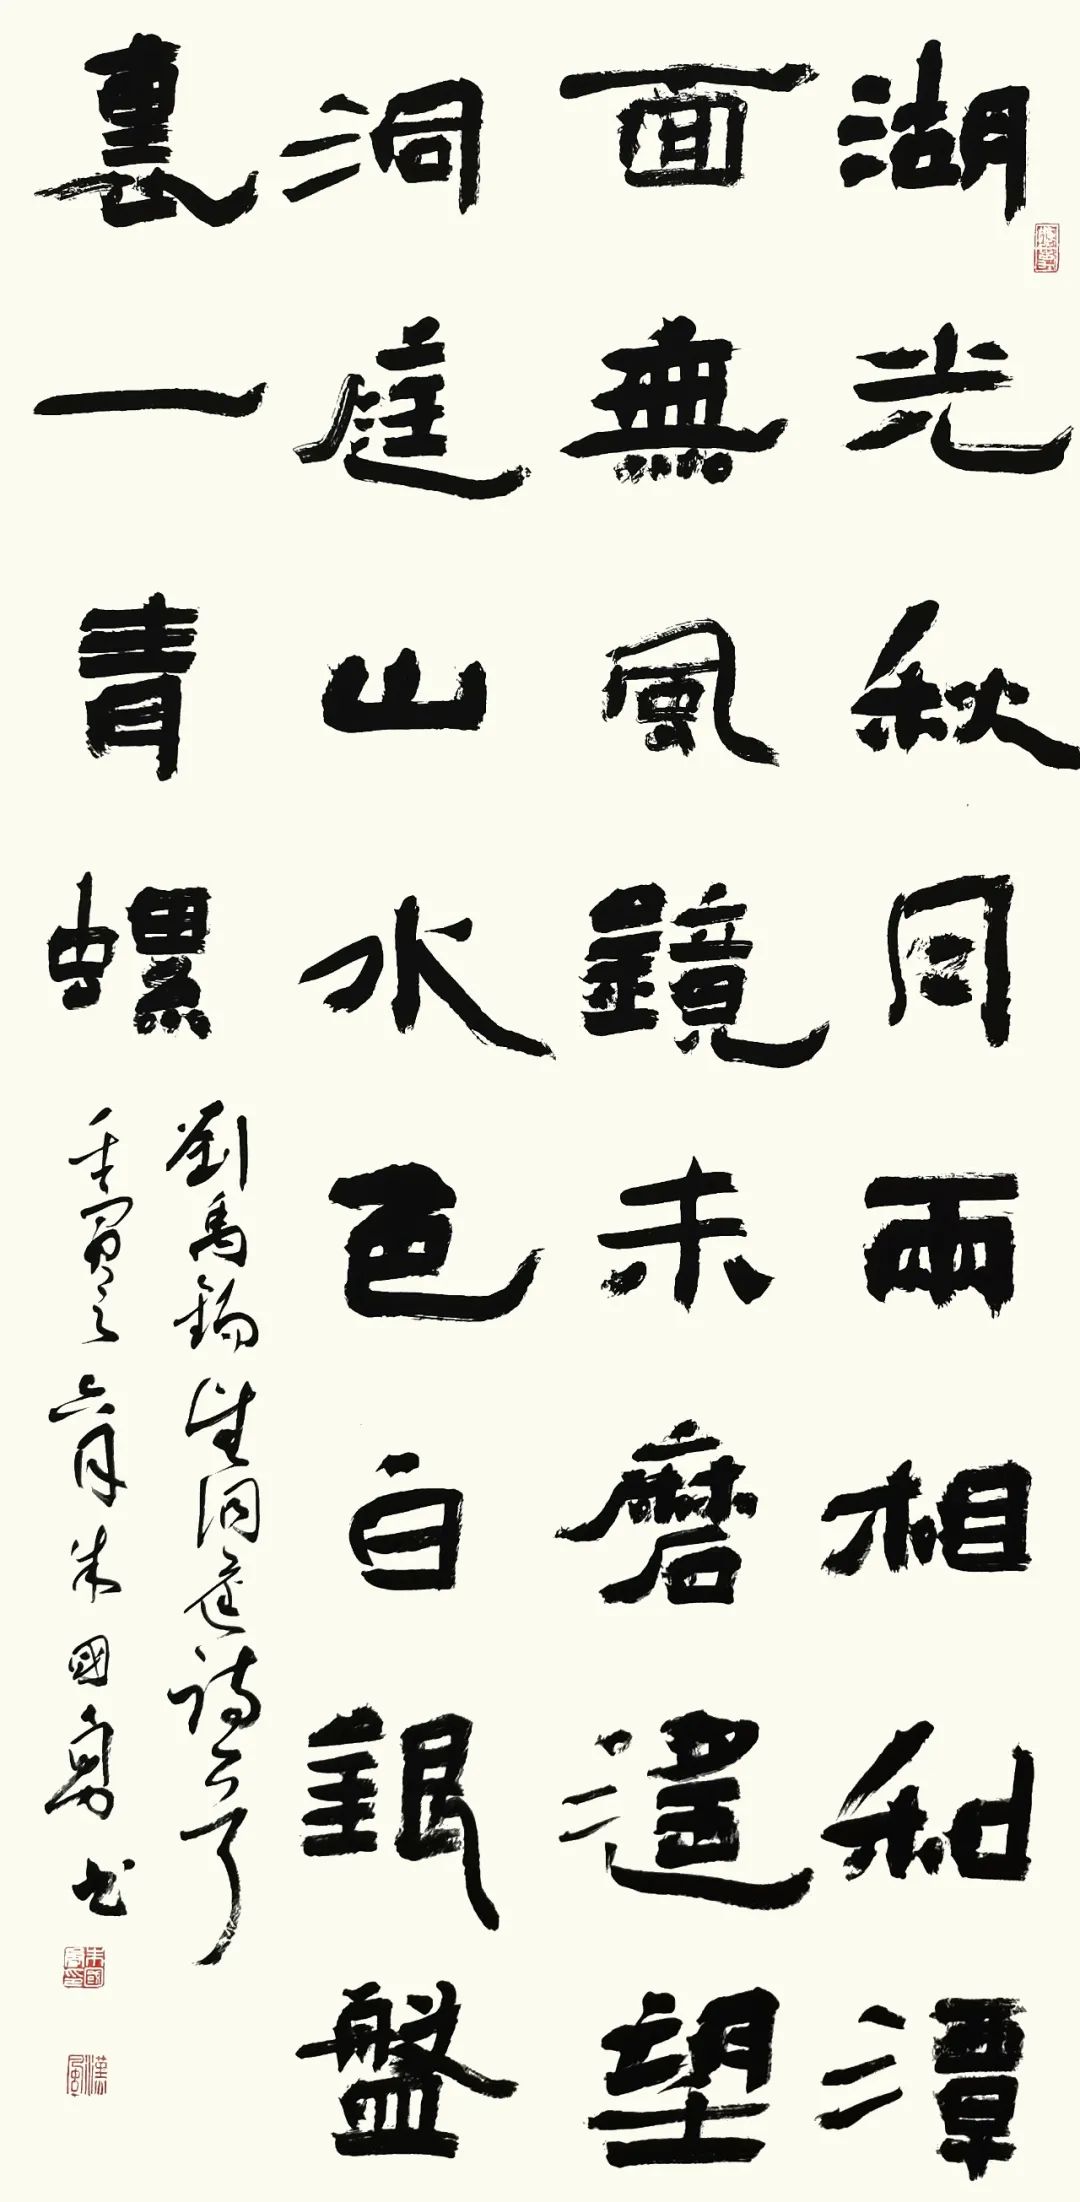 湖光秋月兩相和潭
面無風鏡未磨遙望
洞庭山水色白銀盤
裏一青螺
劉禹錫望洞庭詩
壬寅之六月朱國勇书
朱國勇印
漢風